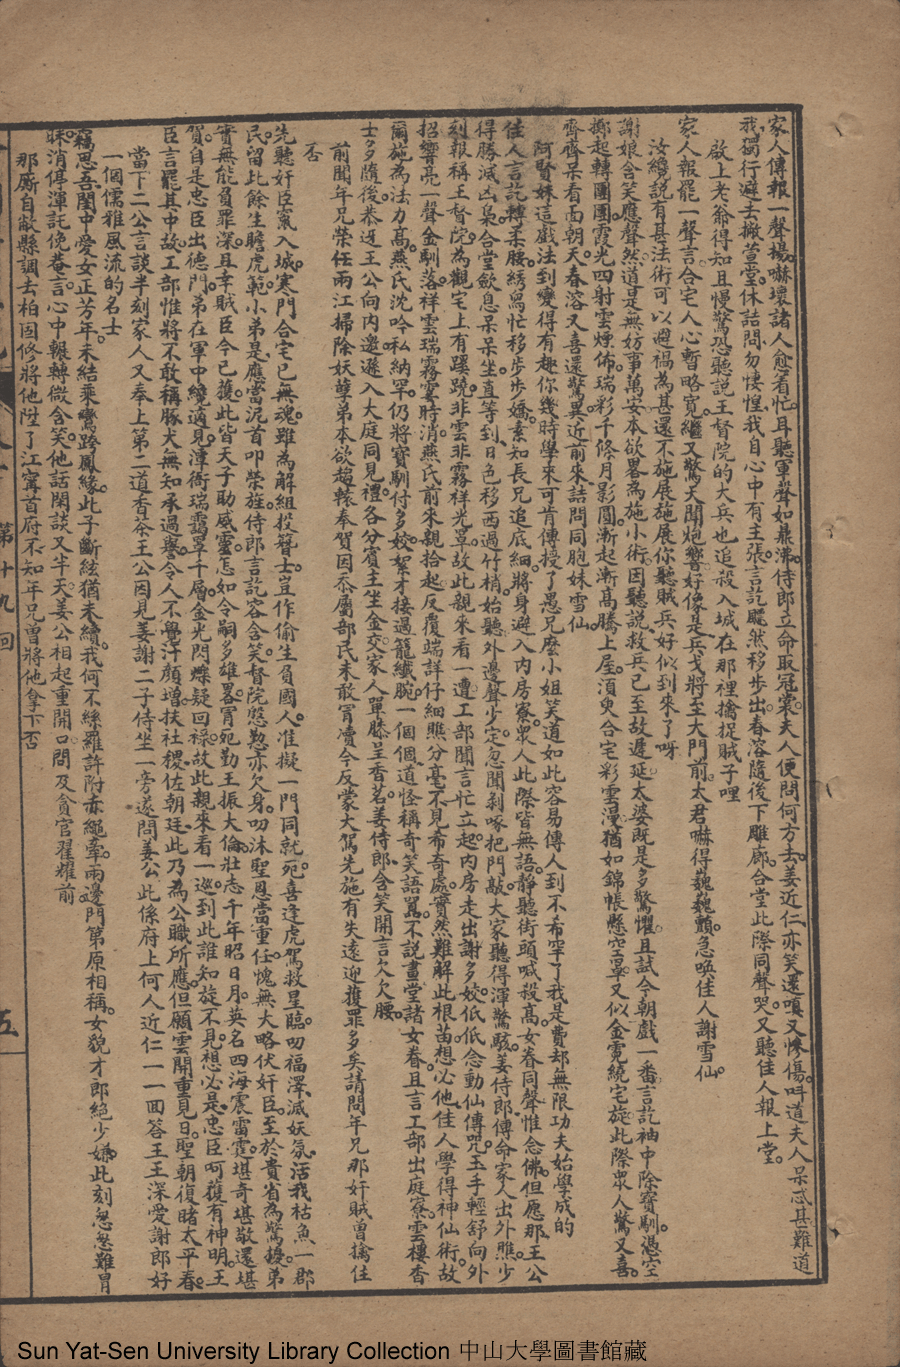 家人傳報一聲揚。嚇壞諸人愈着忙。耳聽軍聲如鼎沸。侍郎立命取冠裳。夫人便問何方去。姜近仁亦笑還嗔又慘傷。叫道夫人呆忒甚難道
我獨行避去撇萱堂。休詰問勿悽惶。我自心中有主張。言訖飄然移步出。春溶隨後下雕廊。合堂此際同聲哭。又聽佳人報上堂。
啟上老爺得知且慢驚恐聽說王督院的大兵也追殺入城在那裡擒捉賊子哩
家人報罷一聲言。合宅人心暫略寬。繼又驚天聞炮響。好像是兵戈將至大門前。太君嚇得巍巍顫。急喚佳人謝雪仙。
汝纔說有甚法術可以避禍為甚還不施展施展你聽賊兵好似到來了呀
謝娘含笑應聲然。道是無妨事萬安。本欲畧為施小術。因聽說救兵已至故遲延。太婆既是多驚懼。且試今朝戲一番。言訖袖中除寶馴。憑空
擲起轉團團。霞光四射雲煙佈。瑞彩千條月影圓。漸起漸高騰上屋。須臾合宅彩雲漫。猶如錦帳懸空罩。又似金霓繞宅旋。此際眾人驚又喜。
齊齊呆看面朝天。春溶又喜還驚異。近前來詰問同胞妹雪仙。
阿賢妹這戲法到變得有趣你幾時學來可肯傳授了愚兄麼小姐笑道如此容易傳人到不希罕了我是費却無限功夫始學成的
佳人言訖轉柔腰。綉舄忙移步步嬌。素知長兄追底細。將身避入內房寮。眾人此際皆無語。靜聽街頭喊殺高。女眷同聲惟念佛。但應那王公
得勝滅凶梟。合堂歛息呆呆坐。直等到日色移西過竹梢。始聽外邊聲少定。忽聞剥啄把門敲。大家聽得渾驚駭。姜侍郎傳命家人出外瞧。少
刻報稱王督院。為觀宅上有蹊蹺。非雲非霧祥光罩。故此親來看一遭。工部聞言忙立起。內房走出謝多姣。低低念動仙傳咒。玉手輕舒向外
招。響亮一聲金馴落。祥雲瑞霧霎時消。燕氏前來親拾起。反覆端詳仔細瞧。分毫不見希奇處。實然難解此根苗。想必他佳人學得神仙術。故
爾施為法力高。燕氏沈吟私納罕。仍將寶馴付多姣。絮才接過籠纖腕。一個個道怪稱奇笑語囂。不說畫堂諸女眷。且言工部出庭寮。雲樓杏
士多隨後。恭迓王公向內邀。遜入大庭同見禮。各分賓主坐金交。家人單膝呈香茗。姜侍郎含笑開言欠欠腰。
前聞年兄榮任兩江掃除妖孽弟本欲趨轅奉賀因忝屬部民未敢冒凟今反蒙大駕先施有失遠迎獲罪多矣請問年兄那奸賊曾擒住
否
先聽奸臣竄入城。寒門合宅已無魂。雖為解組投簪士。豈作偷生負國人。准擬一門同就死。喜逢虎駕救星臨。叨福澤。滅妖氛。活我枯魚一郡
民。留此餘生瞻虎範。小弟是應當泥首叩榮旌。侍郎言訖容含笑。督院慇懃亦欠身。叨沐聖恩當重任。愧無大略伏奸臣。至於貴省為驚擾。弟
實無能負罪深。且幸賊臣今已獲。此皆天子助威靈。怎如令嗣多雄畧。冒宛勤王振大倫。壯志千年昭日月。英名四海震雷霆。堪奇堪敬還堪
賀。自是忠臣出德門。弟在軍中纔適見。潭衙瑞靄罩千層。金光閃爍疑回祿。故此親來看一巡。到此誰知旋不見。想必是忠臣呵護有神明。王
臣言罷其中故。工部惟將不敢稱。豚犬無知承過譽。令人不覺汗顏增。扶社稷。佐朝廷。此乃為公職所應。但願雲開重見日。聖朝復睹太平春。
當下二公言談半刻家人又奉上第二道香茶王公因見姜謝二子侍坐一旁遂問姜公此係府上何人近仁一一回答王王深愛謝郎好
一個儒雅風流的名士
竊思吾閨中愛女正芳年。未結乘鸞跨鳳緣。此子斷絃猶未續。我何不絲羅許附赤繩牽。兩邊門第原相稱。女貌才郎絕少嫌。此刻怱怱難冒
昧。消停渾託俛菴言。心中輾轉微含笑。他話閑談又半天。姜公相起重開口。問及貪官翟耀前
那厮自敝縣調去柏固修將他陞了江寗首府不知年兄曾將他拿下否
第十九回
五
Sun Yat-Sen University Library Collection 中山大學圖書館藏